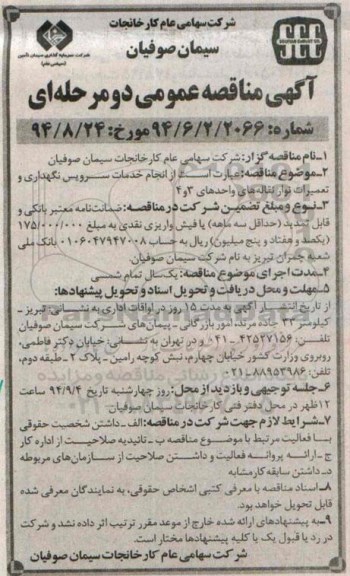 شرکت سهامی عام کارخانجات
سیمان صوفیان
شرکت سرمایه گذاری سیمان تأمین
(سهامی عام)
آگهی مناقصه عمومی دو مرحله‌ای
شماره: ۹۴/۶/۲/۲۰۶۶ مورخ: ۹۴/۸/۲۴
۱ـ نام مناقصه گزار: شرکت سهامی عام کارخانجات سیمان صوفیان
۲ـ موضوع مناقصه: عبارت است از انجام خدمات سرویس نگهداری و
تعمیرات نوار نقاله‌های واحدهای ۳و۴
۳ـ نوع و مبلغ تضمین شرکت در مناقصه: ضمانت‌نامه معتبر بانکی و
قابل تمدید (حداقل سه ماهه) یا فیش واریزی نقدی به مبلغ ۱۷۵/۰۰۰/۰۰۰
(یکصد و هفتاد و پنج میلیون) ریال به حساب ۰۱۰۶۰۴۷۹۴۷۰۰۸ بانک ملی
شعبه چمران تبریز به نام شرکت سیمان صوفیان.
۴ـ مدت اجرای موضوع مناقصه: یک‌سال تمام شمسی
۵ـ مهلت و محل دریافت و تحویل اسناد و تحویل پیشنهادها:
از تاریخ انتشار آگهی به مدت ۱۵ روز در اوقات اداری به نشانی: تبریز ـ
کیلومتر ۳۳ جاده مرند، امور بازرگانی ـ پیمان‌های شرکت سیمان صوفیان
تلفن: ۴۲۵۲۷۱۵۶ـ۰۴۱ و در تهران به نشانی: خیابان دکتر فاطمی،
روبروی وزارت کشور خیابان چهارم، نبش کوچه رامین ـ پلاک ۲ ـ طبقه دوم،
تلفن: ۸۸۹۵۳۹۸۶ـ۰۲۱
۶ـ جلسه توجیهی و بازدید از محل: روز چهارشنبه تاریخ ۹۴/۹/۴ ساعت
۱۲ظهر در محل دفتر فنی کارخانجات سیمان صوفیان
۷ـ شرایط لازم جهت شرکت در مناقصه: الف ـ داشتن شخصیت حقوقی
با فعالیت مرتبط با موضوع مناقصه ب ـ تائیدیه صلاحیت از اداره کار
ج ـ ارائه پروانه فعالیت و داشتن صلاحیت از سازمان‌های مربوطه
دـ داشتن سابقه کار مشابه
۸ـ اسناد مناقصه با معرفی کتبی اشخاص حقوقی، به نمایندگان معرفی شده
قابل تحویل خواهد بود.
۹ـ به پیشنهادهای ارائه شده خارج از موعد مقرر ترتیب اثر داده نشد و شرکت
در رد یا قبول یک یا کلیه پیشنهادها مختار است.
شرکت سهامی عام کارخانجات سیمان صوفیان